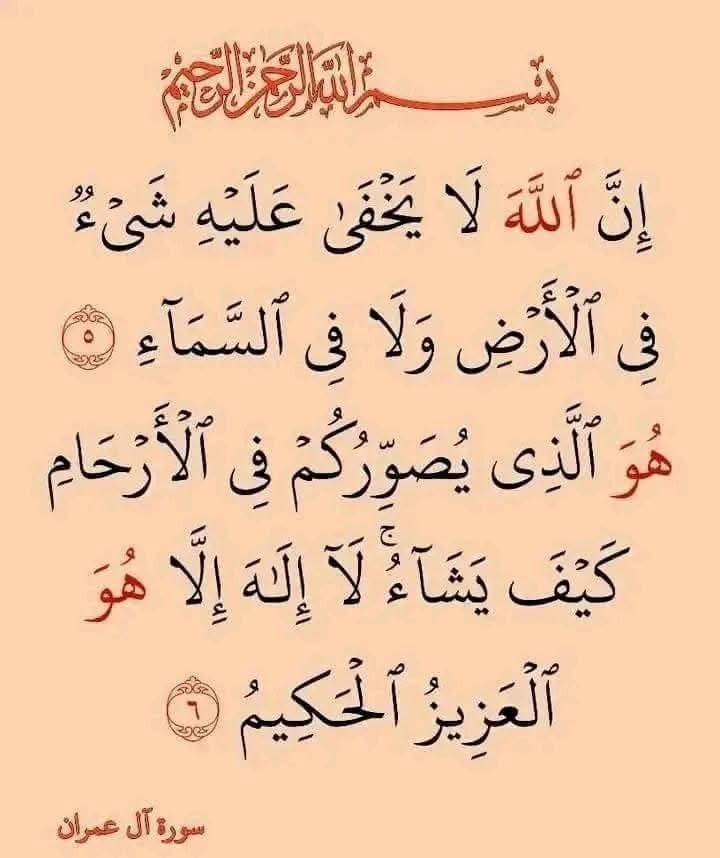 بسم الله الرحمن الرحيم
إِنَّ ٱللَّهَ لَا يَخۡفَىٰ عَلَيۡهِ شَيۡءٞ
فِي ٱلۡأَرۡضِ وَلَا فِي ٱلسَّمَآءِ ٥
هُوَ ٱلَّذِي يُصَوِّرُكُمۡ فِي ٱلۡأَرۡحَامِ
كَيۡفَ يَشَآءُۚ لَآ إِلَٰهَ إِلَّا هُوَ
ٱلۡعَزِيزُ ٱلۡحَكِيمُ ٦
سورة آل عمران